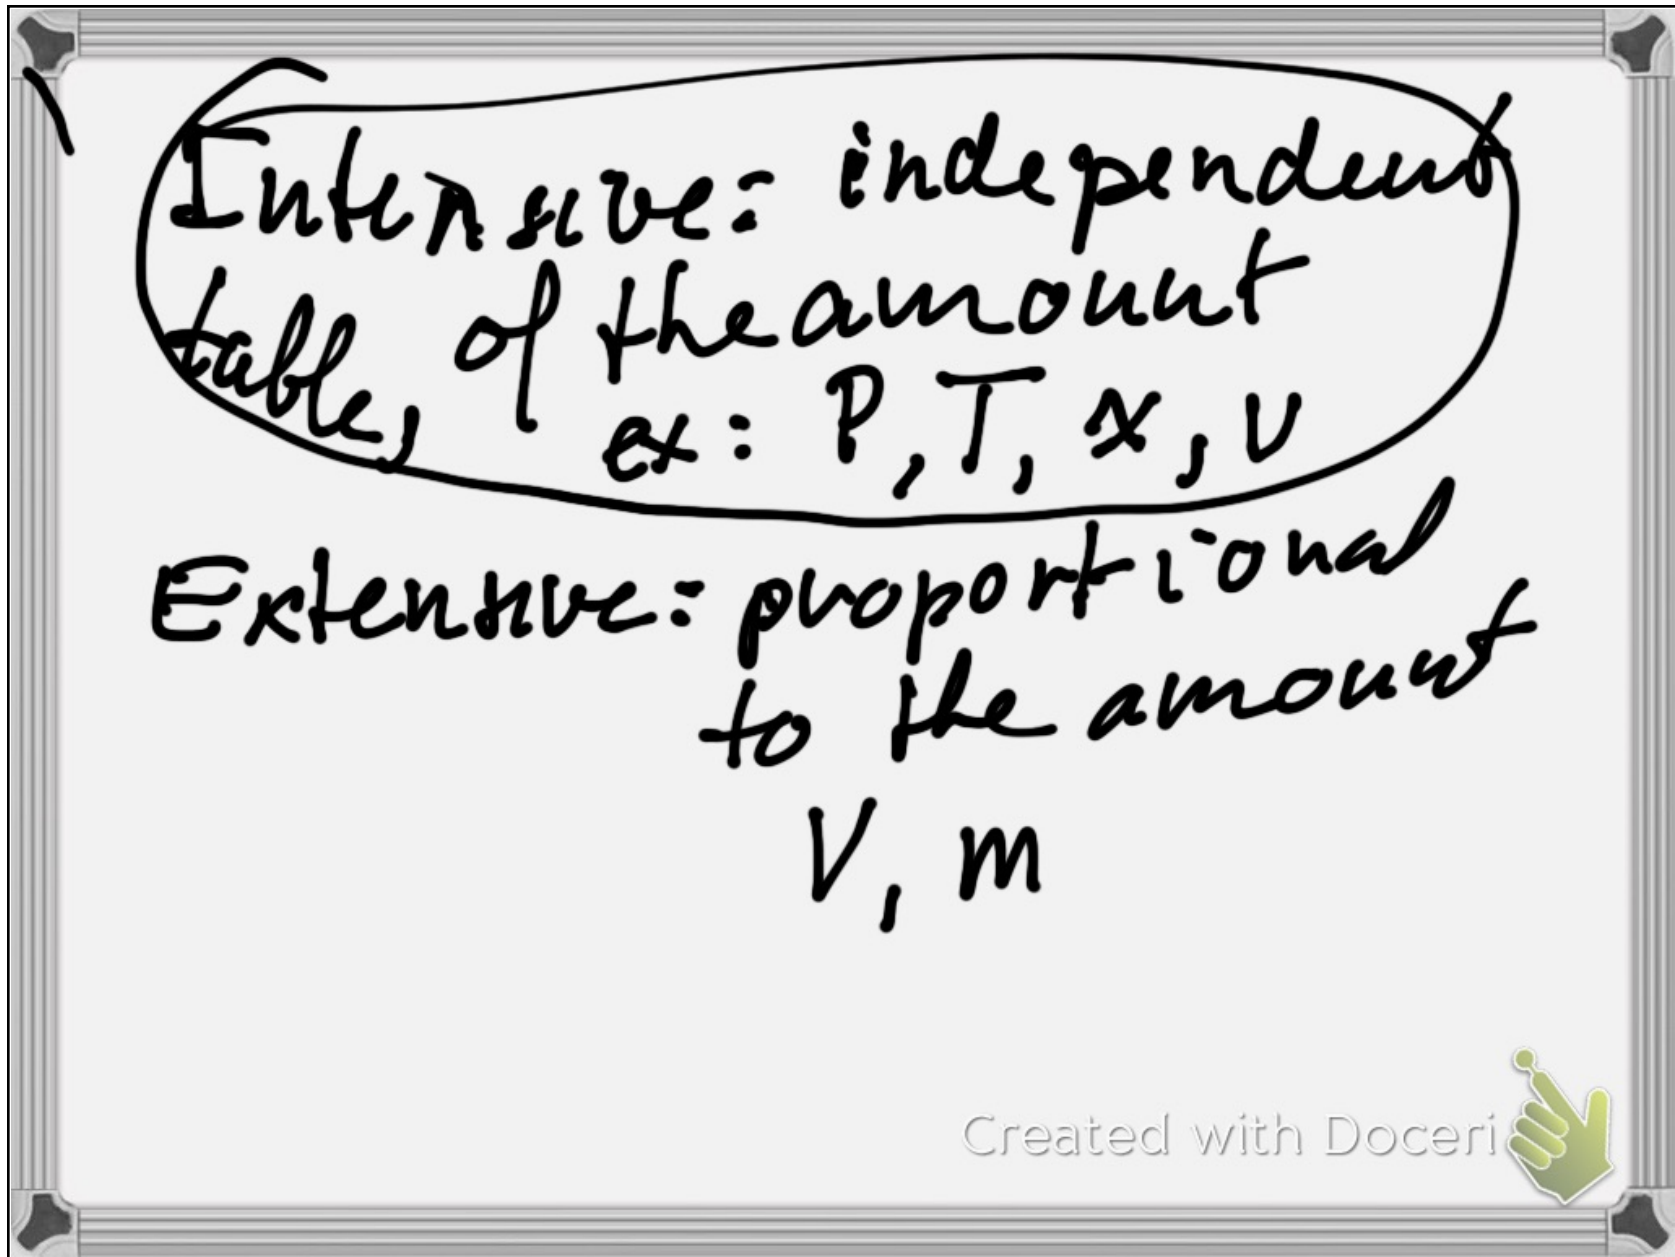 Intensive: independent
table, of the amount
ex: P, T, x, v
Extensive: proportional
to the amount
V, m
Created with Doceri